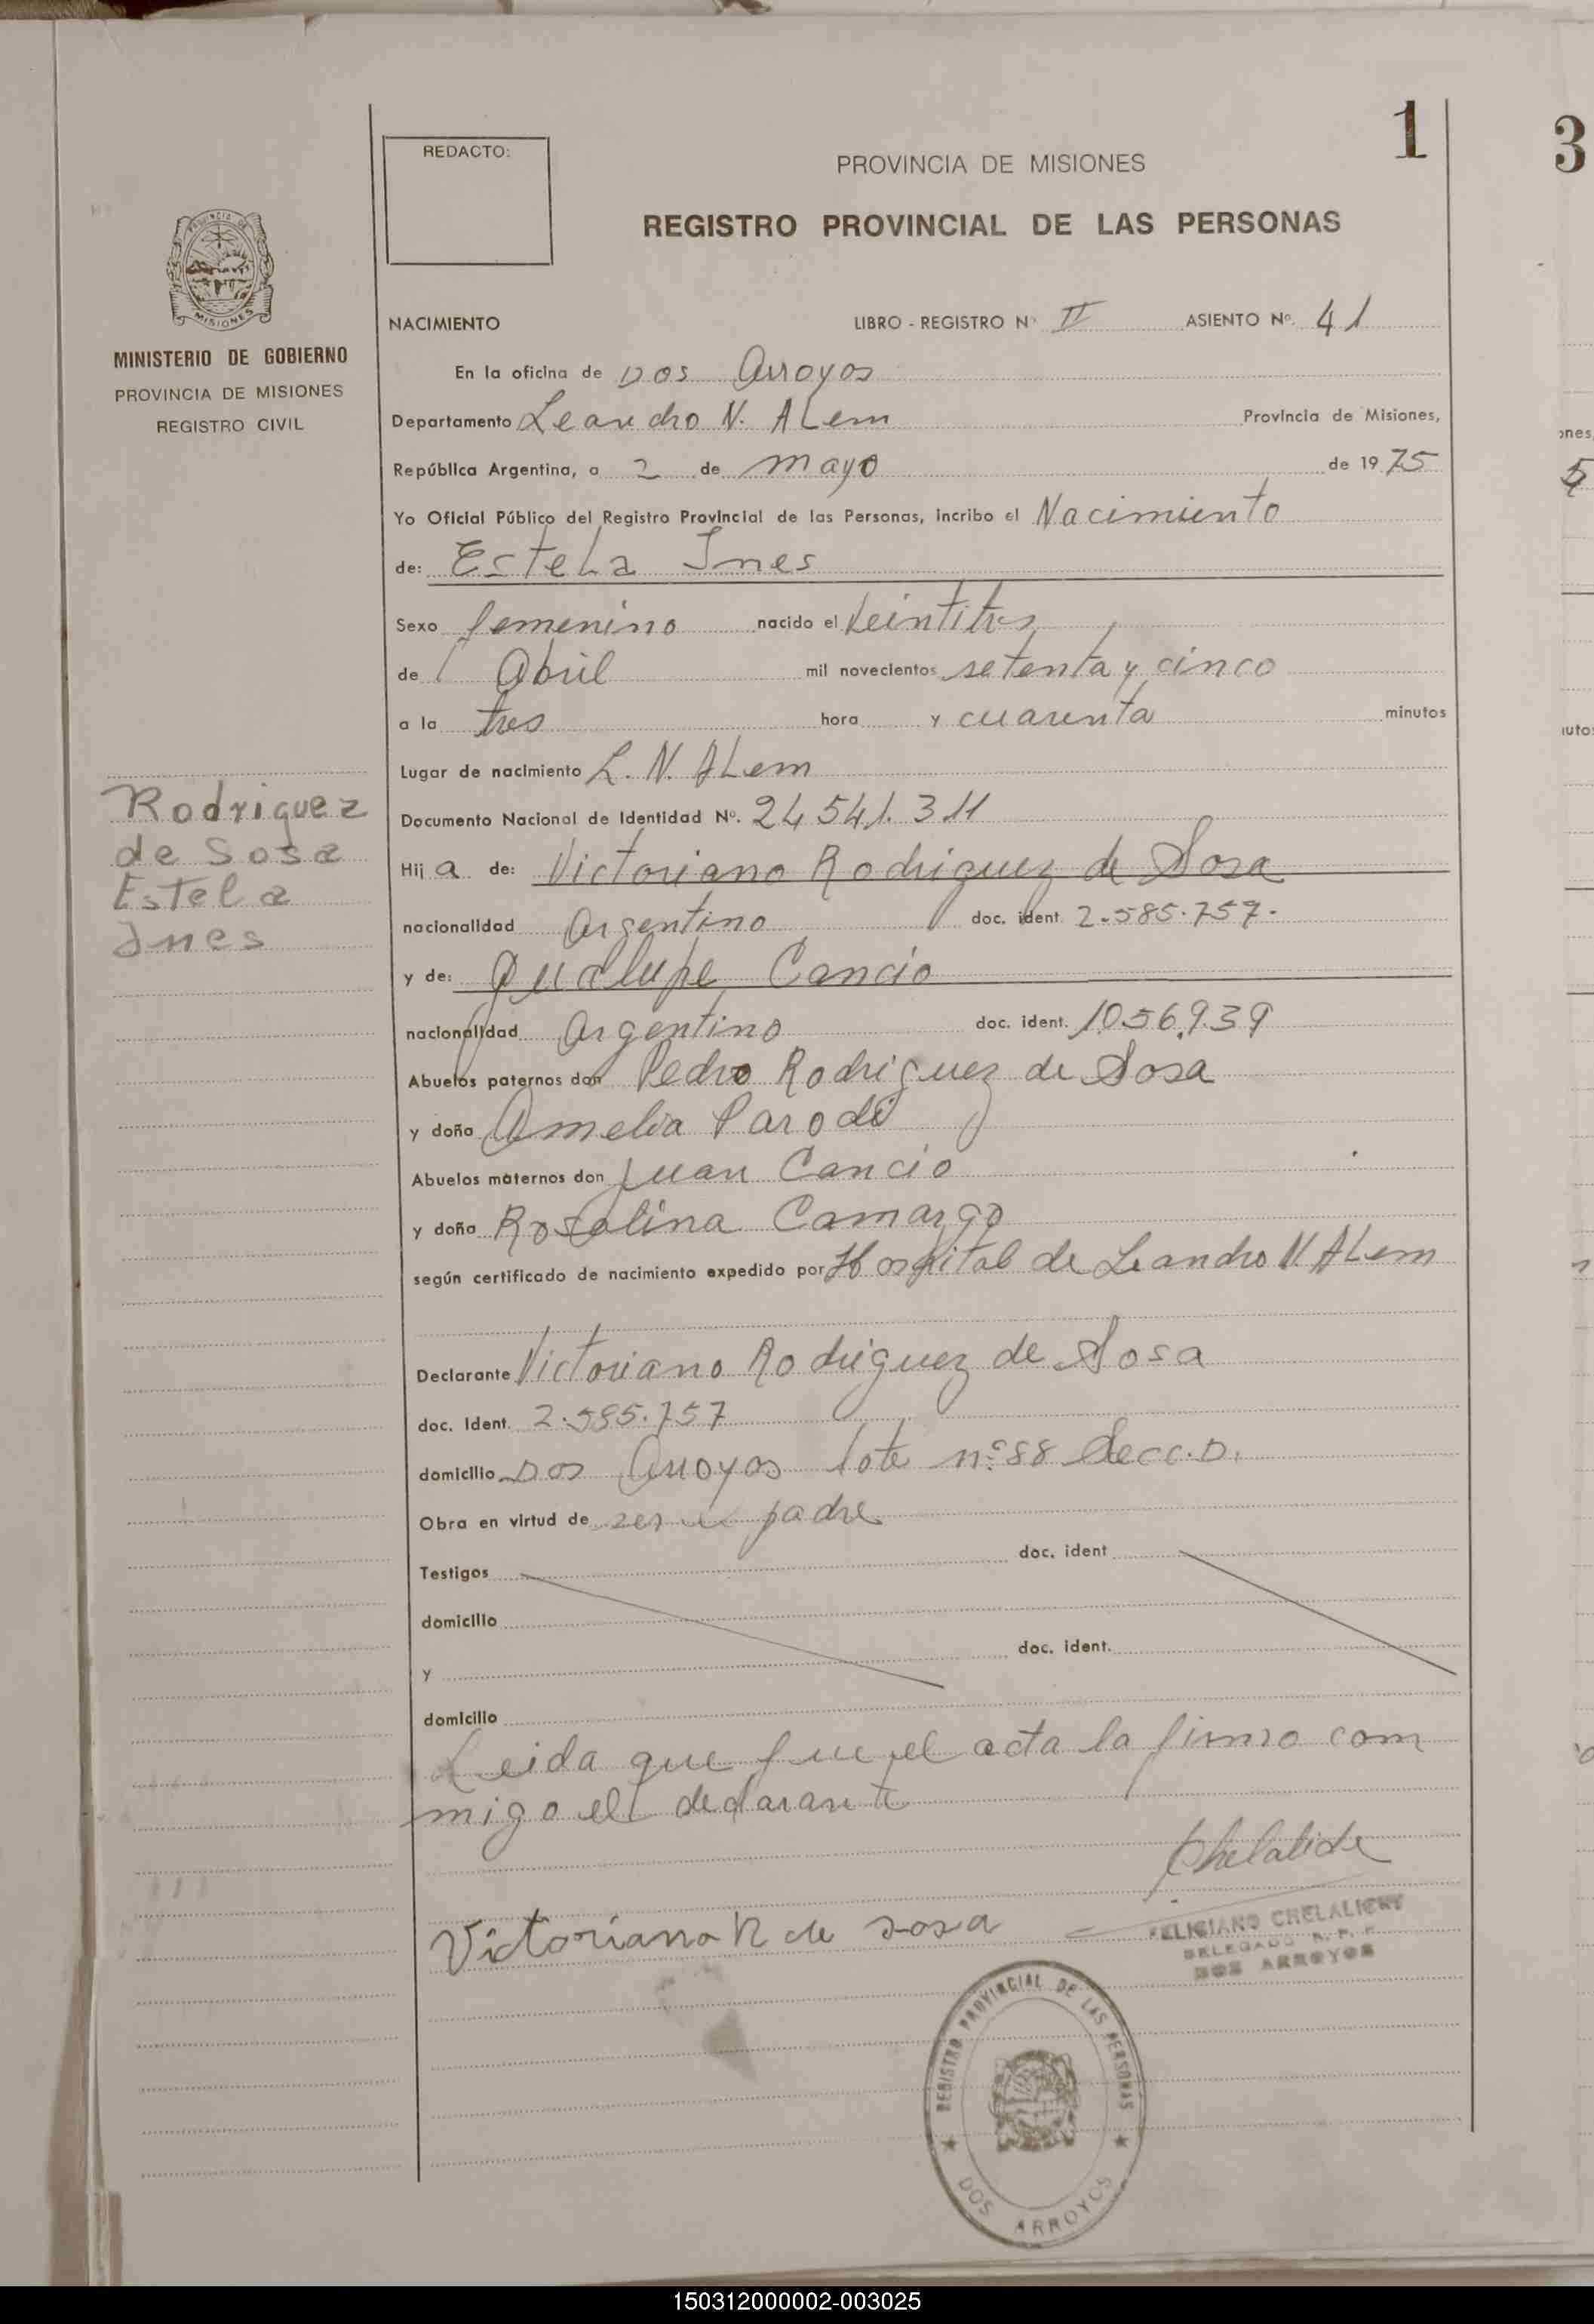 1
3
REDACTO:
PROVINCIA DE MISIONES
REGISTRO PROVINCIAL DE LAS PERSONAS
PROVINCIA DE
MISIONES
MINISTERIO DE GOBIERNO
PROVINCIA DE MISIONES
REGISTRO CIVIL
NACIMIENTO LIBRO - REGISTRO Nº II ASIENTO Nº. 41
En la oficina de Dos Arroyos
Departamento Leandro N. ALem Provincia de Misiones,
República Argentina, a 2 de mayo de 19 75
Yo Oficial Público del Registro Provincial de las Personas, incribo el Nacimiento
de: EsteLa Ines
Sexo femenino nacido el Veintitres
de Abril mil novecientos setenta y cinco
a la tres hora y cuarenta minutos
Lugar de nacimiento L. N. ALem
Documento Nacional de Identidad Nº. 24 541. 311
Rodriguez
de Sosa
Estela
Ines
Hij a de: Victoriano Rodriguez de Sosa
nacionalidad Argentino doc. ident. 2.585.757.
y de: gualupe Cancio
nacionalidad Argentino doc. ident. 1.056.939
Abuelos paternos don Pedro Rodriguez de Sosa
y doña Amelia Parodi
Abuelos maternos don Juan Cancio
y doña Rosalina Camargo
según certificado de nacimiento expedido por Hospital de Leandro N. ALem
Declarante Victoriano Rodriguez de Sosa
doc. Ident. 2.585.757
domicilio Dos Arroyos lote nº 88 Secc. D.
Obra en virtud de ser padre
Testigos doc. ident
domicilio
y doc. ident.
domicilio
Leida que fue el acta la firmo com
migo el declarante
Victoriano R de sosa
FELICIANO CHELALICHE
DELEGADO R. P. P.
DOS ARROYOS
REGISTRO PROVINCIAL DE LAS PERSONAS
DOS ARROYOS
150312000002-003025